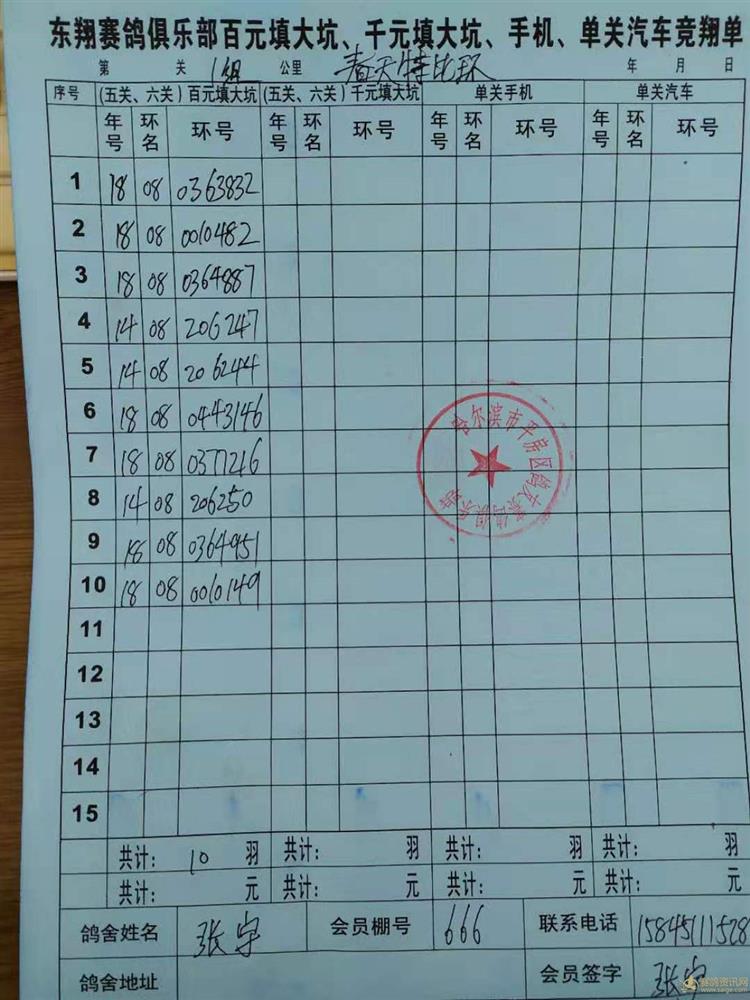 东翔赛鸽俱乐部百元填大坑、千元填大坑、手机、单关汽车竞翔单
第 关 1组 公里 春天特比环 年 月 日
序号 (五关、六关)百元填大坑 (五关、六关)千元填大坑 单关手机 单关汽车
年号 环名 环号 年号 环名 环号 年号 环名 环号 年号 环名 环号
1 18 08 0363832
2 18 08 0010482
3 18 08 0364887
4 14 08 206247
5 14 08 206244
6 18 08 0443146
7 18 08 0377216
8 14 08 206250
9 18 08 0364951
10 18 08 0010149
11
12
13
14
15
共计: 10 羽 共计: 羽 共计: 羽 共计: 羽
共计: 元 共计: 元 共计: 元 共计: 元
鸽舍姓名 张宇 会员棚号 666 联系电话 15845111528
鸽舍地址 会员签字 张宇
哈尔滨市平房区
赛鸽资讯网
www.saige.com